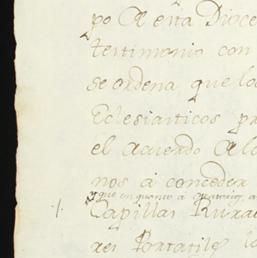 po A esta Dioce
testimonio con
se ordena, que lo
Eclesiasticos pr
el Acuerdo Alo
nos á conceder
y que en quanto á Oratorios, a
Capillas Rura
res Portatile lo